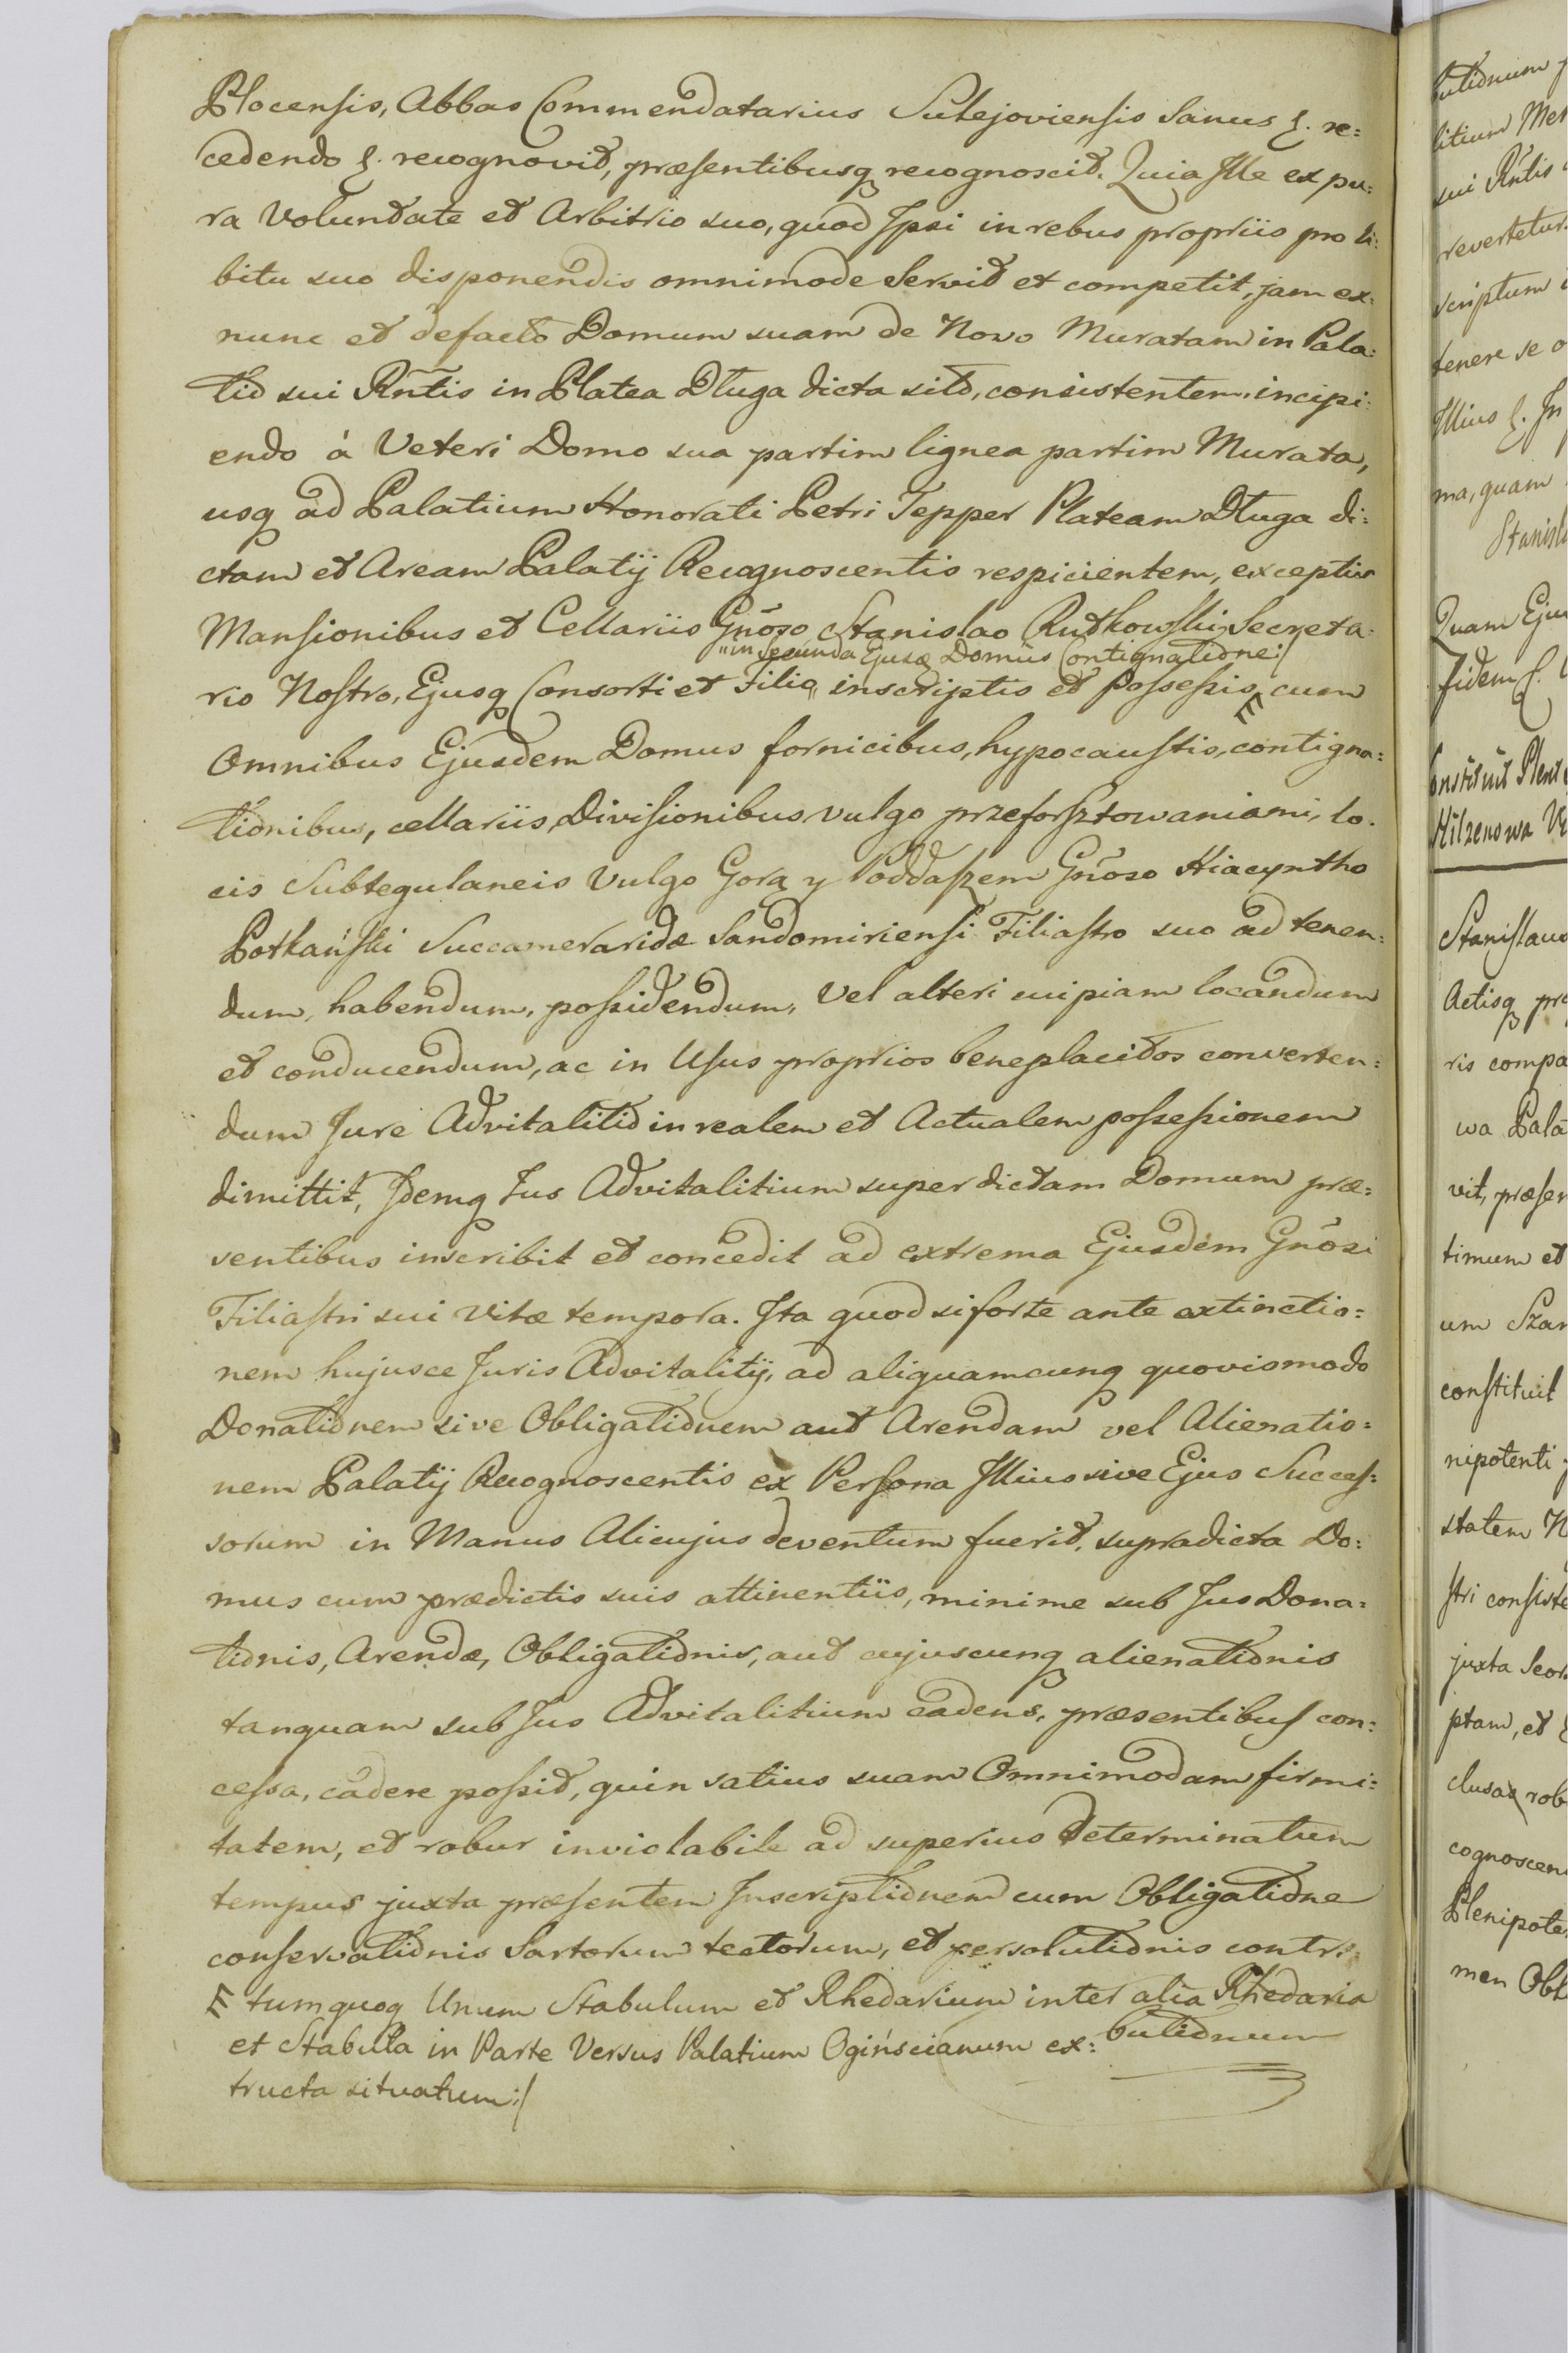 Plocensis, Abbas Commendatarius Sulejoviensis Sanus &. re=
cedendo &. recognovit, præsentibusq recognoscit. Quia Ille ex pu=
ra Voluntate et Arbitrio suo, quod Ipsi in rebus propriis pro li=
bitu suo disponendis omnimode Servit et competit, jam ex=
nunc et defacto Domum suam de Novo Muratam in Pala=
tio sui Rñtis in Platea Długa dicta sito, consistentem, incipi=
endo á Veteri Domo sua partim lignea partim Murata,
usq ad Palatium Honorati Petri Tepper Plateam Długa di=
ctam et Aream Palatij Recognoscentis respicientem, exceptis
Mansionibus et Cellariis Gnõso Stanislao Rutkowski Secreta=
"in Secunda Ejusq Domus Contignatione:/
rio Nostro, Ejusq Consorti et Filio " inscriptis et possessis, cum
Omnibus Ejusdem Domus fornicibus, hypocaustis, contigna=
tionibus, cellariis, Divisionibus vulgo przeforsztowaniami, lo=
cis Subtegulaneis Vulgo Gorą y Poddaszem Gnõso Hiacyntho
Potkański Succamerarido Sandomiriensi Filiastro suo ad tenen=
dum, habendum, possidendum, Vel alteri cuipiam locandum
et conducendum, ac in Usus proprios beneplacitos converten=
dum Jure Advitalitio in realem et Actualem possessionem
dimittit, Idemq Jus Advitalitium super dictam Domum præ=
sentibus inscribit et concedit ad extrema Ejusdem Gnõsi
Filiastri sui Vitæ tempora. Ita quod si forte ante extinctio=
nem hujusce Juris Advitalitij, ad aliquamcunq quovismodo
Donationem sive Obligationem aut Arendam vel Alienatio=
nem Palatij Recognoscentis ex Persona Illius sive Ejus Succes=
sorum in Manus Alicujus deventum fuerit, supradicta Do=
mus cum prædictis suis attinentiis, minime sub Jus Dona=
tionis, Arendæ, Obligationis, aut cujuscunq alienationis
tanquam sub Jus Advitalitium cadens, præsentibus con=
cessa, cadere possit, quin satius suam Omnimodam firmi=
tatem, et robur inviolabile ad superius determinatum
tempus juxta præsentem Inscriptionem cum Obligatione
conservationis Sartorum tectorum, et persolutionis contri=
butionum
tumquoq Unum Stabulum et Rhedarium inter alia Rhedaria
et Stabulla in Parte Versus Palatium Ogińscianum ex=
tructa situatum:/
butionum
litium
sui Rñtis
revertetur
scriptum
tenere se
Illius &. In
ma, quam
Stanisla
Quam Ejus
fidem &.
Hilzenowa
Stanislaus
Actisq præ
ris compa
wa Pala
vit, præsen
timum et
um Szan
constituit
nipotenti
statem N
stri consiste
juxta Seor
ptam, et
clusas rob
cognoscen
Plenipote
men Obl